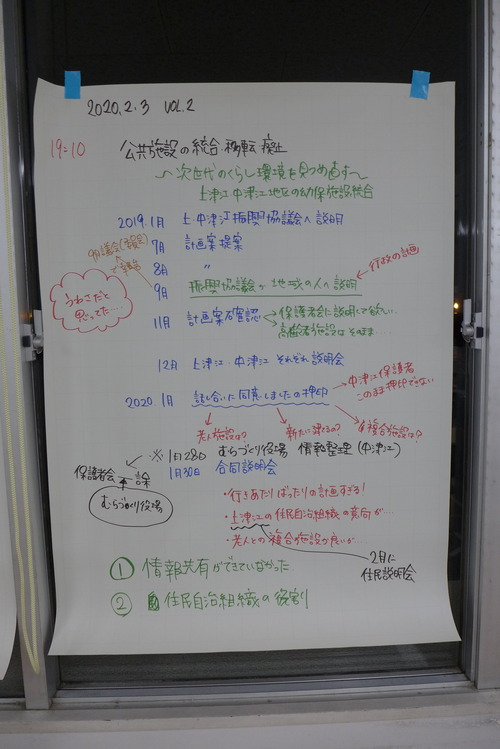 2020.2.3 VOL.2
19:10
公共施設の統合・移転・廃止
〜次世代のくらし環境を見つめ直す〜
上津江・中津江地区の幼保施設統合
2019.1月 上・中津江振興協議会へ説明
7月 計画案提案
8月 〃
9月 振興協議会から地域の人へ説明
行政の計画
9月議会(報告)
で
うわさだと
思ってた…
11月 計画案確認
保護者会に説明して欲しい…
高齢者施設はそのまま…
12月 上津江・中津江 それぞれ説明会
2020.1月 話し合いに同意しましたの押印
中津江保護者
このまま押印できない
老人施設は?
新たに建てるの?
複合施設は?
※1月28日 むらづくり役場 情報整理(中津江)
1月30日 合同説明会
保護者会
むらづくり役場
・行きあたりばったりの計画すぎる!
・上津江の住民自治組織の意向が…
・老人との複合施設が良いが…
2月に
住民説明会
① 情報共有ができていなかった
② 住民自治組織の役割